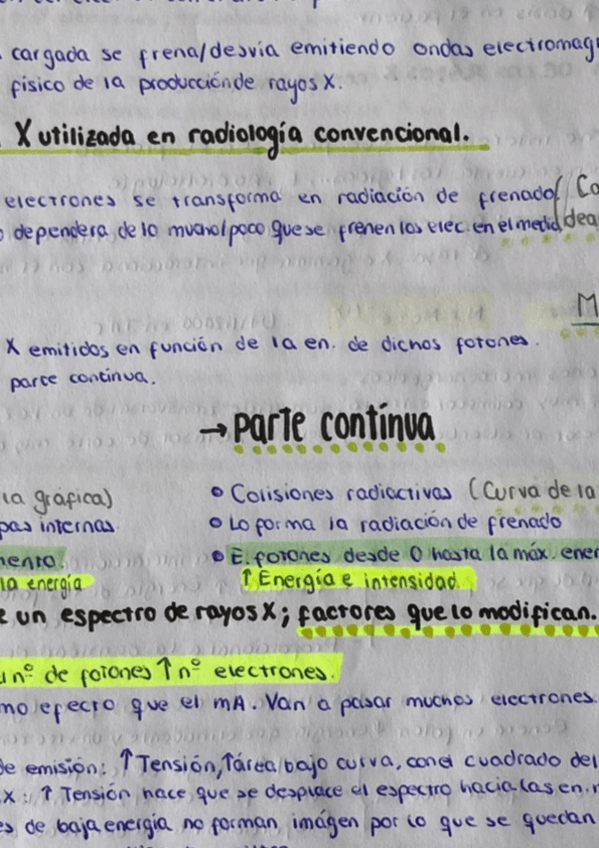 cargada se frena/desvía emitiendo ondas electromag
físico de la producción de rayos X.
X utilizada en radiología convencional.
electrones se transforma en radiación de frenado Co
dependera de lo mucho/poco que se frenen los elec. en el medio dea
M
X emitidos en función de la en. de dichos fotones.
parte continua.
→ parte contínua
la gráfica) • Colisiones radiactivas (Curva de la
pas internas. • Lo forma la radiación de frenado
mento. • E. fotones desde 0 hasta la máx. ener
la energía ↑ Energía e intensidad.
e un espectro de rayos X; factores que lo modifican.
nº de fotones ↑ nº electrones.
mo efecto que el mA. Van a pasar muchos electrones.
de emisión: ↑ Tensión, ↑ área bajo curva, con el cuadrado del
X: ↑ Tensión hace que se desplace el espectro hacia las en.
es de baja energía no forman imágen por lo que se quedan